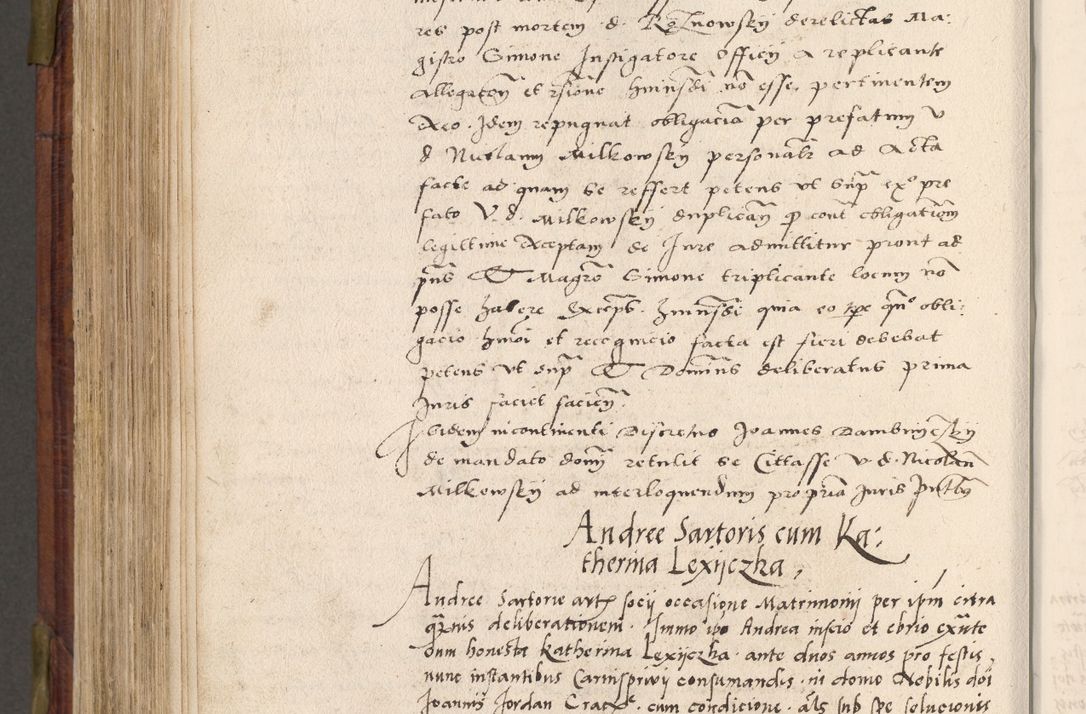 res post mortem d. derelictas Ma:
gistro Simone Instigatore officij a replicante
allegatoru et non esse pertinentem
Aeo. Idem repugnat obligacia per prefatum V
d Nicolaum Milkowskij personalr ad Acta
facte ad quam se reffert petens vt supra ex pre
fato V. d. Milkowskij duplicam p cont obligationem
legittime Aceptam de Jure admittitur prout ad
pns Magro Simone triplicante locum no
posse habere quia eo tpe obli:
gacio hmoi et recognicio facta est fieri debebat
petens vt supra Dominus deliberatus prima
Juris faciet
Ibidem incontinenti Discretus Joannes
de mandato domini retulit se Cittasse V d. Nicolaum
Milkowskij ad interloquendum propria Juris
Andree Sartoris cum Ka:
therina Lexijczka,
Andree Sartorie artis socij occasione Matrimonij per ipm citra
deliberationem. Immo ipo Andrea inscio et ebrio exnte
cum honesta Katherina Lexijczka. ante duos annos pro festis
nunc instantibus Carnisprivij consumandis. in domo Nobilis
Joannis Jordan cum condicione. als sub spe solucionis